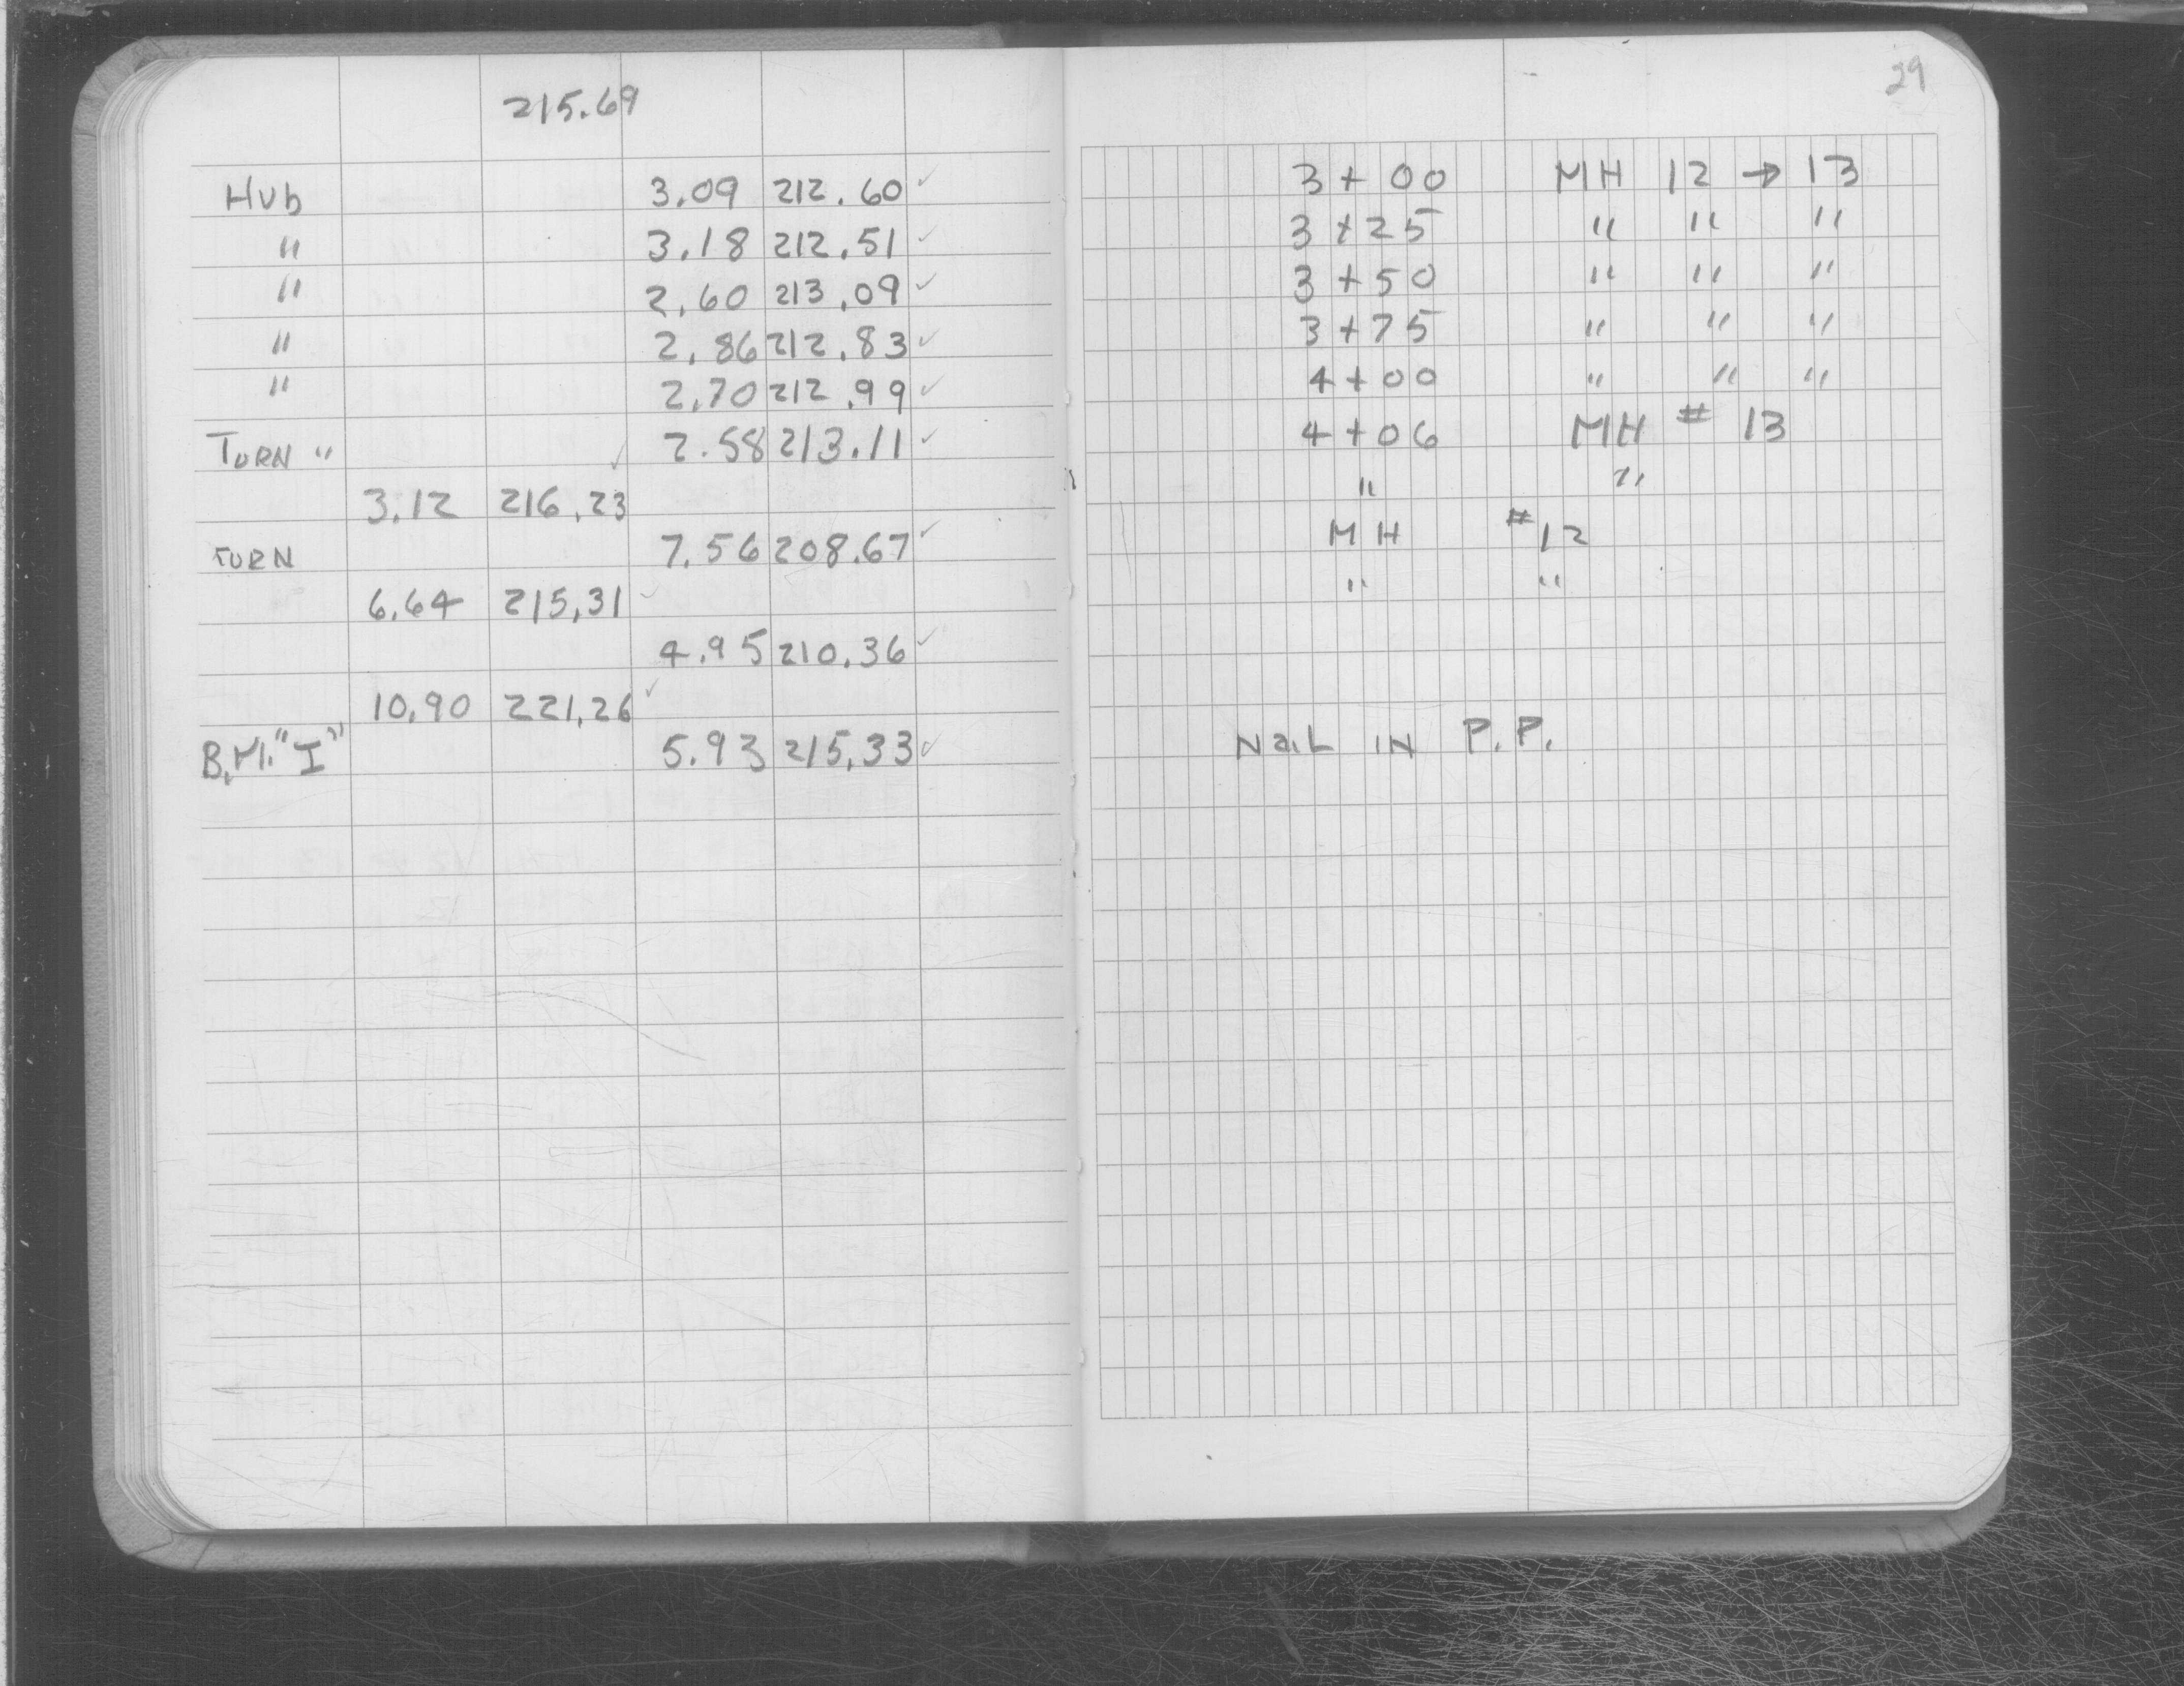 215.69
29
Hub 3.09 212.60 ✓ 3+00 MH 12 → 13
" 3.18 212.51 ✓ 3+25 " " "
" 2.60 213.09 ✓ 3+50 " " "
" 2.86 212.83 ✓ 3+75 " " "
" 2.70 212.99 ✓ 4+00 " " "
TURN " 2.58 213.11 ✓ 4+06 MH # 13
3.12 216.23 ✓ " "
TURN 7.56 208.67 ✓ MH #12
6.64 215.31 ✓ " "
4.95 210.36 ✓
10.90 221.26 ✓
B.M. "I" 5.93 215.33 ✓ NaiL IN P.P.